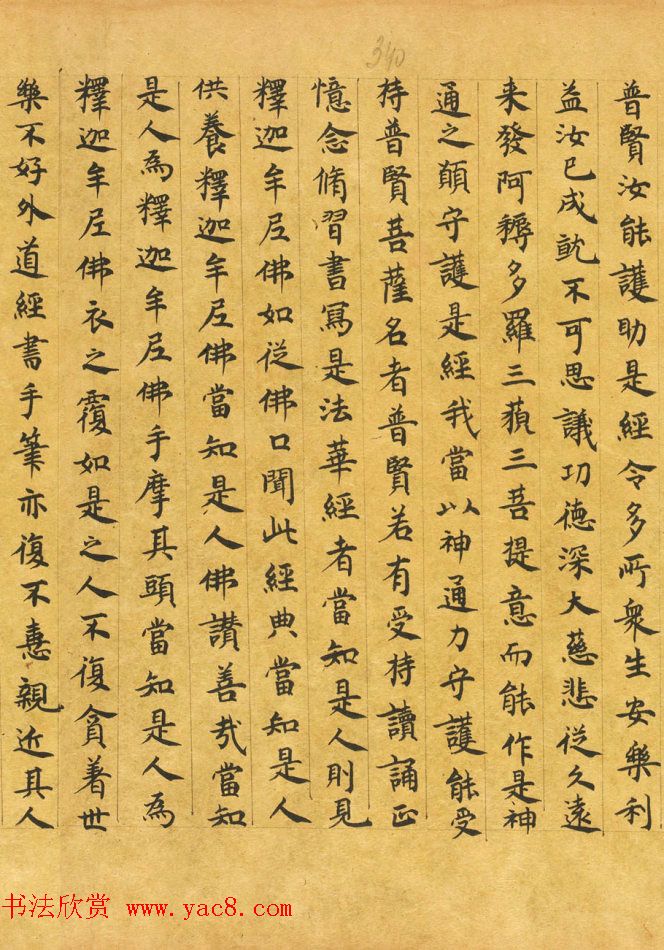 340
普賢汝能護助是經令多所衆生安樂利
益汝已成就不可思議功德深大慈悲從久遠
来發阿耨多羅三藐三菩提意而能作是神
通之願守護是經我當以神通力守護能受
持普賢菩薩名者普賢若有受持讀誦正
憶念脩習書寫是法華經者當知是人則見
釋迦牟尼佛如從佛口聞此經典當知是人
供養釋迦牟尼佛當知是人佛讃善哉當知
是人為釋迦牟尼佛手摩其頭當知是人為
釋迦牟尼佛衣之覆如是之人不復貪著世
樂不好外道經書手筆亦復不憙親近其人
书法欣赏 www.yac8.com